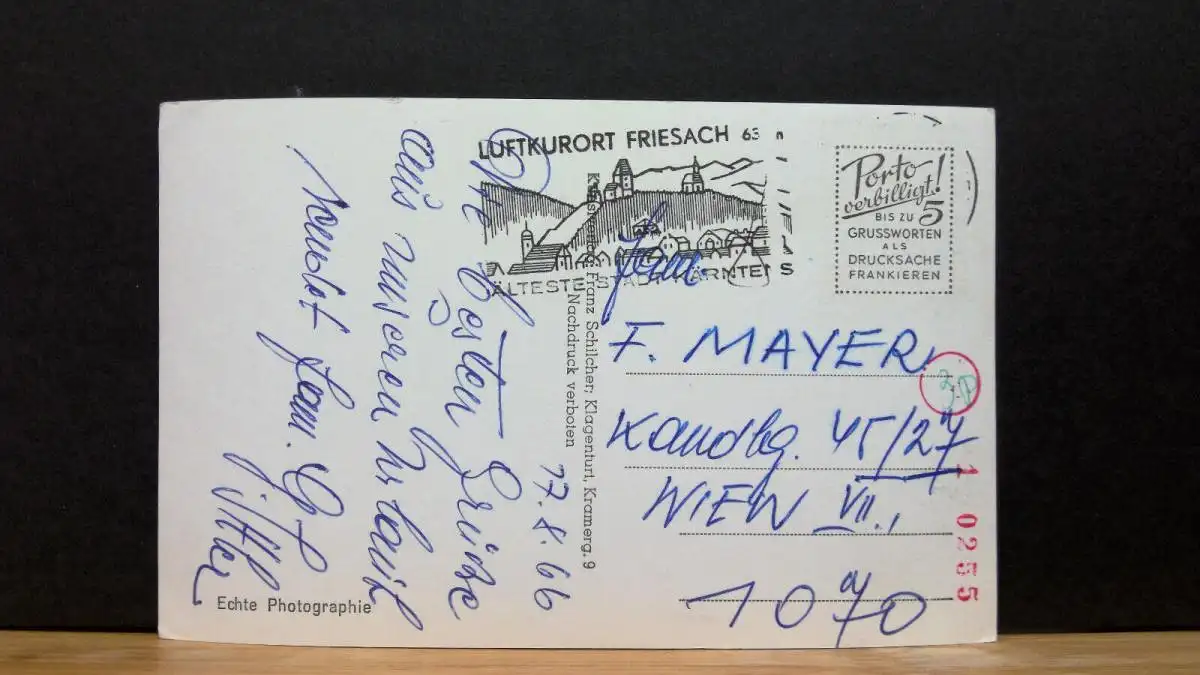 LUFTKURORT FRIESACH 63
ÄLTESTE STADT KÄRNTENS
Porto
verbilligt!
BIS ZU 5
GRUSSWORTEN
ALS
DRUCKSACHE
FRANKIEREN
17.8.66
Die besten Grüße
aus unseren Urlaub
sendet Fam.
Fam.
F. MAYER
Kandlg. 45/27
WIEN VII.,
1070
Franz Schilcher, Klagenfurt, Kramerg. 9
Nachdruck verboten
Echte Photographie
1 0255